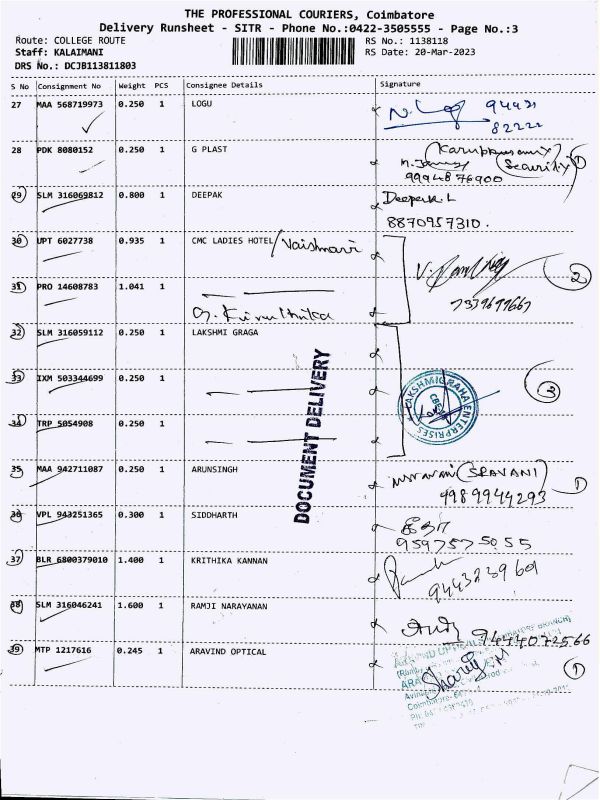 THE PROFESSIONAL COURIERS, Coimbatore
Delivery Runsheet - SITR - Phone No.:0422-3505555 - Page No.:3
Route: COLLEGE ROUTE RS No.: 1138118
Staff: KALAIMANI RS Date: 20-Mar-2023
DRS No.: DCJB113811803
S No Consignment No Weight PCS Consignee Details Signature
27 MAA 568719973 0.250 1 LOGU 94421
82222
28 PDK 8080152 0.250 1 G PLAST (Karuppusamy
Security) 1
9994876900
29 SLM 316069812 0.800 1 DEEPAK Deepak. L
8870957310.
30 UPT 6027738 0.935 1 CMC LADIES HOTEL/Vaishnavi
2
31 PRO 14608783 1.041 1 7339697667
32 SLM 316059112 0.250 1 LAKSHMI GRAGA
33 IXM 503344699 0.250 1 LAKSHMIGRAHA ENTERPRISES CBE 3
34 TRP 5054908 0.250 1
DOCUMENT DELIVERY
35 MAA 942711087 0.250 1 ARUNSINGH (SRAVANI) 1
9989944293
36 VPL 943251365 0.300 1 SIDDHARTH
9597575055
37 BLR 6800379010 1.400 1 KRITHIKA KANNAN
944323969
38 SLM 316046241 1.600 1 RAMJI NARAYANAN
9444072566
39 MTP 1217616 0.245 1 ARAVIND OPTICAL 1